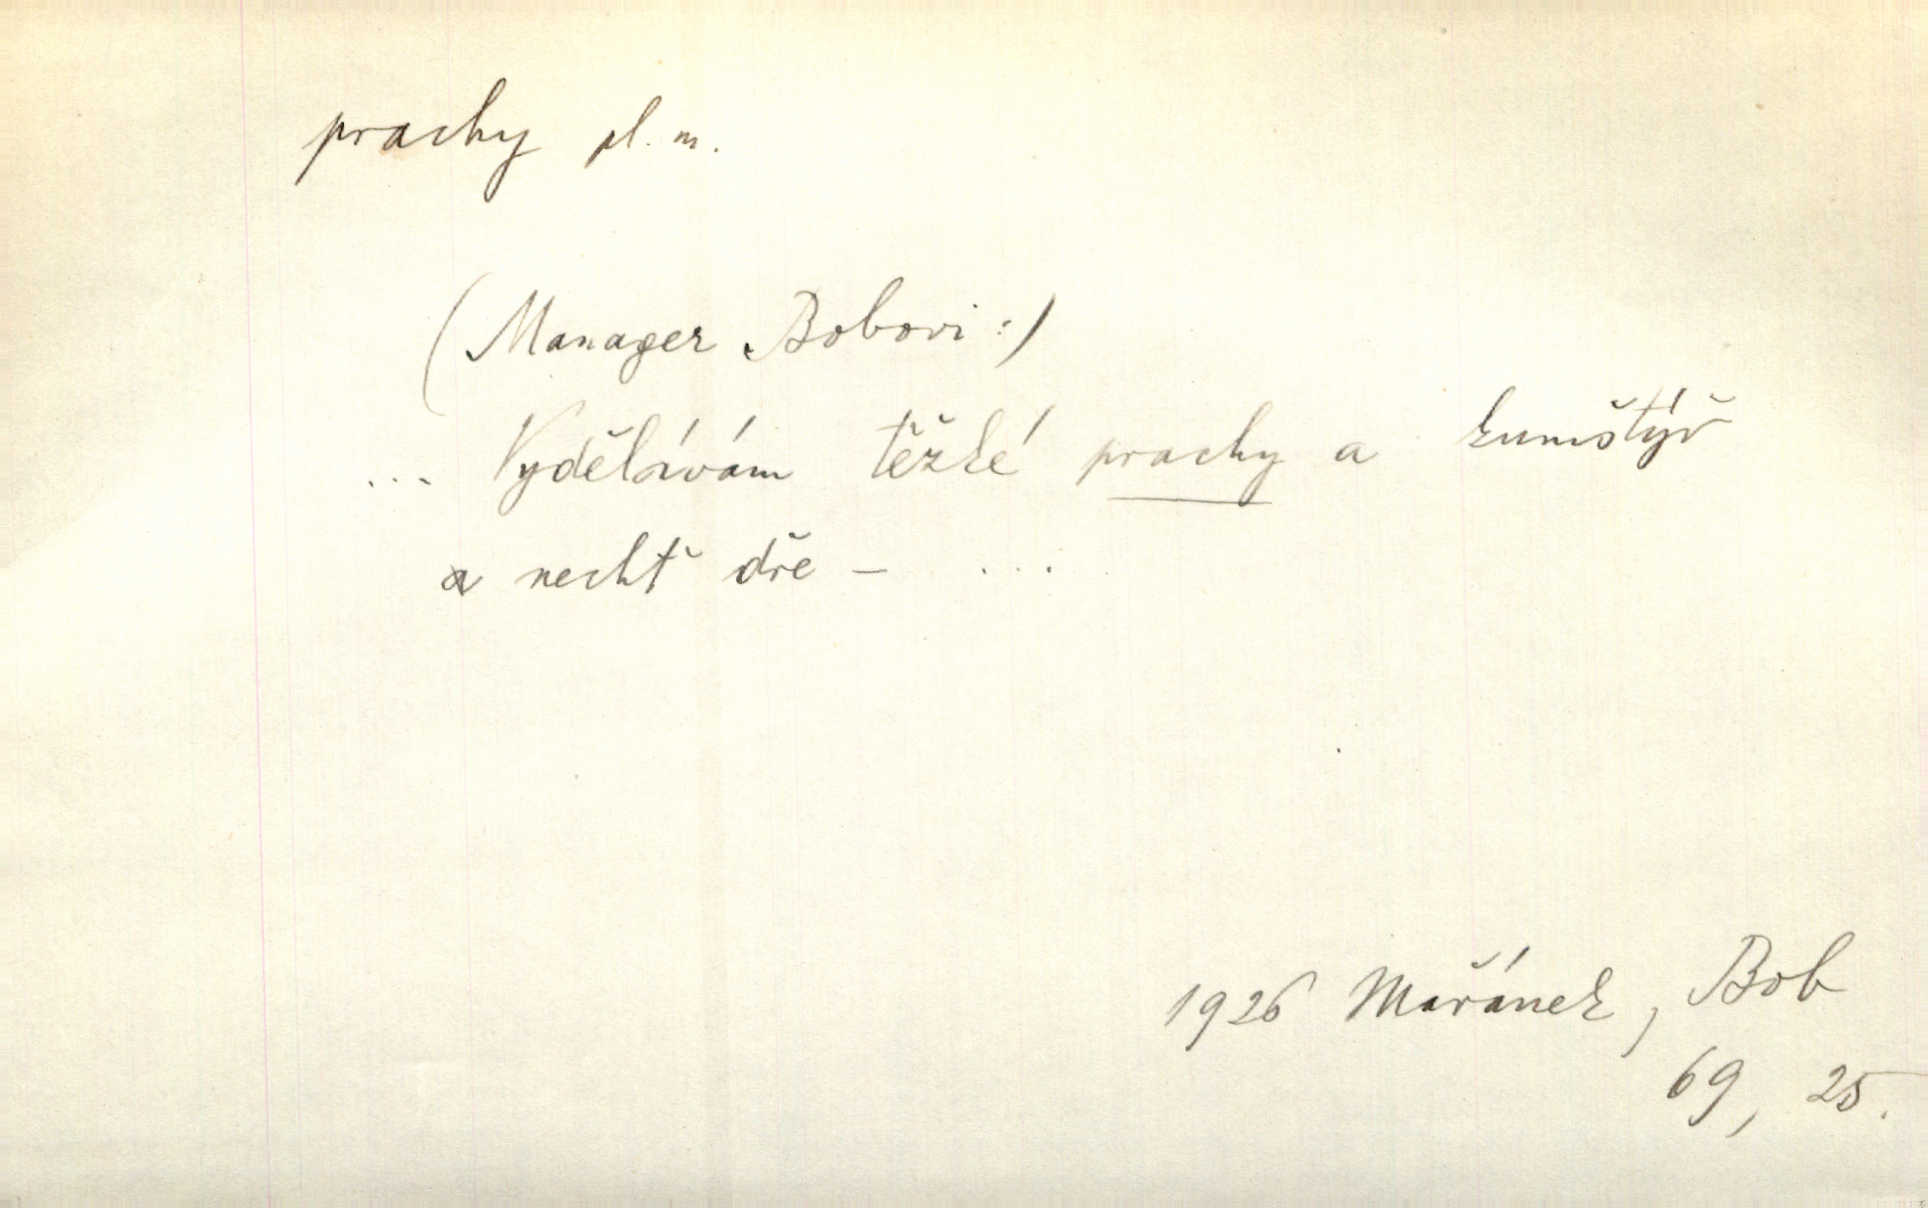 prachy pl. m.
(Manager Bobovi:)
... Vydělávám těžké prachy a kumštýř
a nechť dře – ...
1926 Mařánek, Bob
69, 25.